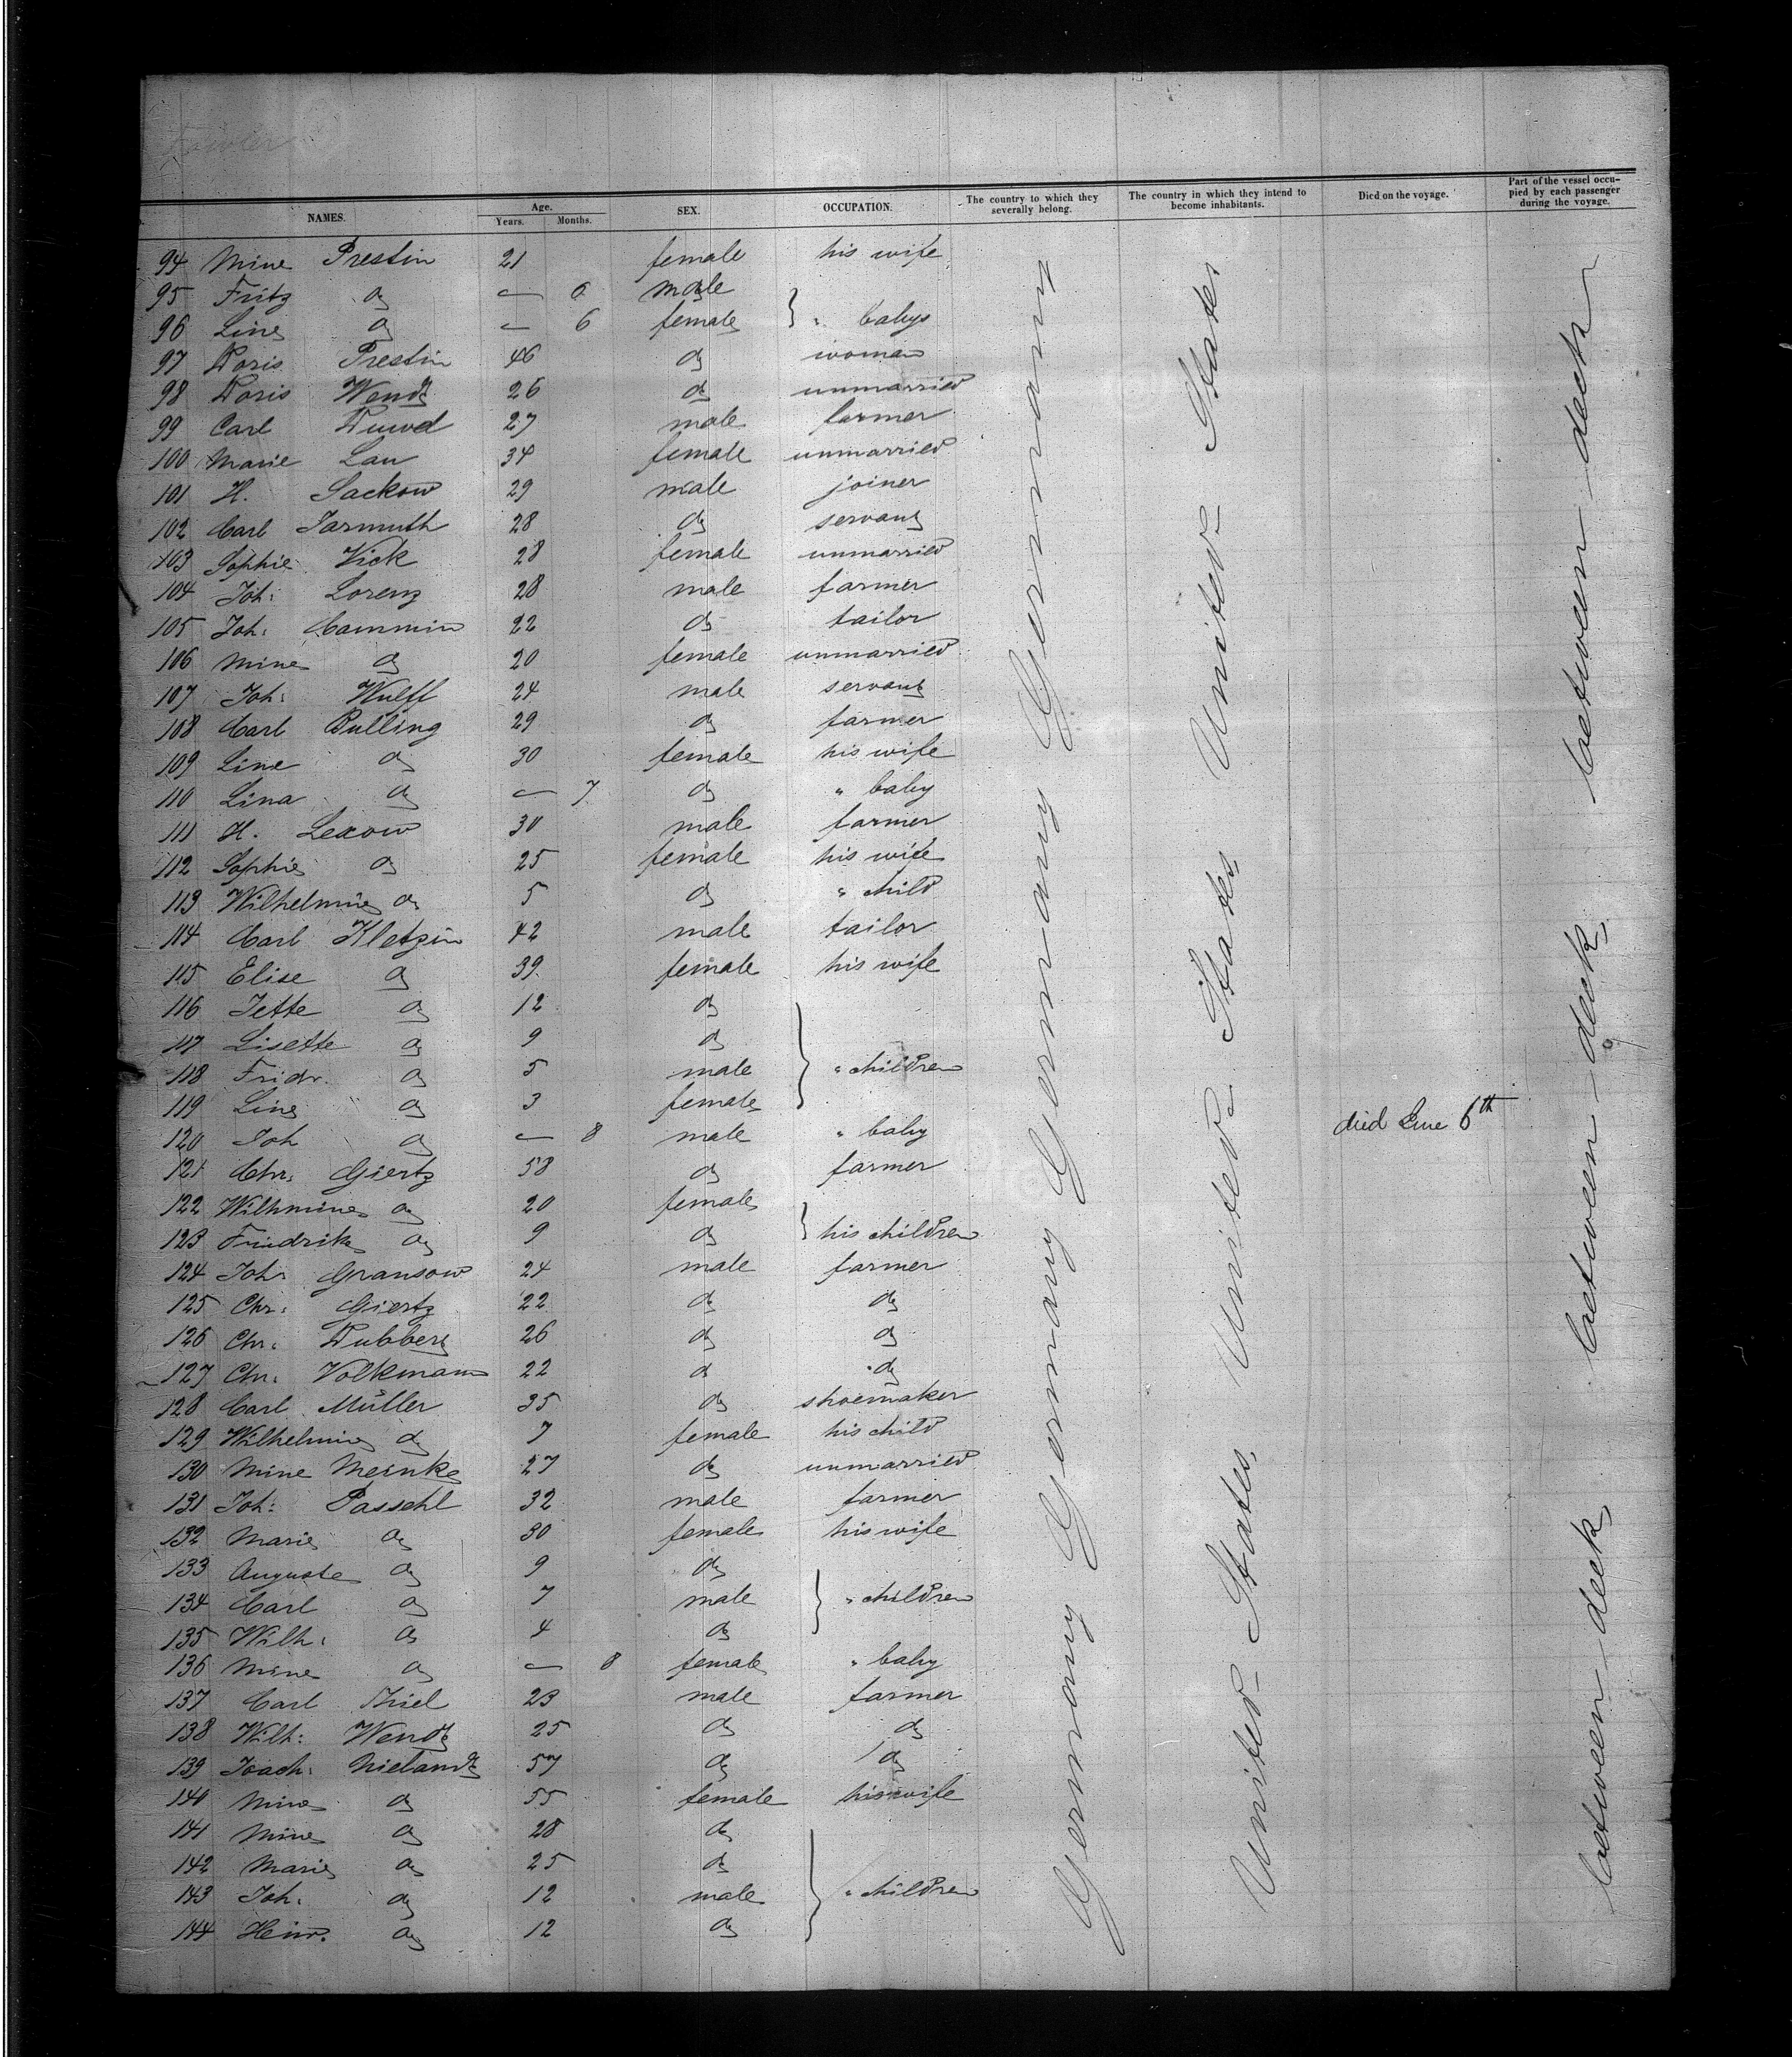 Fowler
NAMES. Age. Years. Months. SEX. OCCUPATION. The country to which they severally belong. The country in which they intend to become inhabitants. Died on the voyage. Part of the vessel occupied by each passenger during the voyage.
94 Mine Prestin 21 female his wife
95 Fritz do — 6 male
96 Line do — 6 female } " babys
97 Doris Prestin 46 do woman
98 Doris Wendt 26 do unmarried
99 Carl Duwel 27 male farmer
100 Marie Lau 34 female unmarried
101 H. Sackow 29 male joiner
102 Carl Jarmuth 28 do servant
103 Sophie Vick 28 female unmarried
104 Joh: Lorenz 28 male farmer
105 Joh: Cammin 22 do tailor
106 Mine do 20 female unmarried
107 Joh: Wulff 24 male servant
108 Carl Bulling 29 do farmer
109 Line do 30 female his wife
110 Lina do — 7 do " baby
111 H. Lexow 30 male farmer
112 Sophie do 25 female his wife
113 Wilhelmine do 5 do " child
114 Carl Kletzin 42 male tailor
115 Elise do 39 female his wife
116 Jette do 12 do
117 Lisette do 9 do
118 Fridr. do 5 male } " children
119 Line do 3 female
120 Joh do — 8 male " baby died 6th
121 Chr: Giertz 58 do farmer
122 Wilhmine do 20 female
123 Friedrike do 9 do } his children
124 Joh: Gransow 24 male farmer
125 Chr: Giertz 22 do do
126 Chr: Dubbert 26 do do
127 Chr: Volkmann 22 do do
128 Carl Müller 35 do shoemaker
129 Wilhelmine do 7 female his child
130 Mine Meinke 27 do unmarried
131 Joh: Passehl 32 male farmer
132 Marie do 30 female his wife
133 Auguste do 9 do
134 Carl do 7 male } " children
135 Wilh: do 4 do
136 Mine do — 8 female " baby
137 Carl Thiel 23 male farmer
138 Wilh: Wendt 25 do do
139 Joach: Nielandt 57 do do
140 Mine do 55 female his wife
141 Mine do 28 do
142 Marie do 25 do
143 Joh: do 12 male } " children
144 Heinr. do 12 do
Germany Germany Germany Germany
United States United States United States
between deck between deck between deck